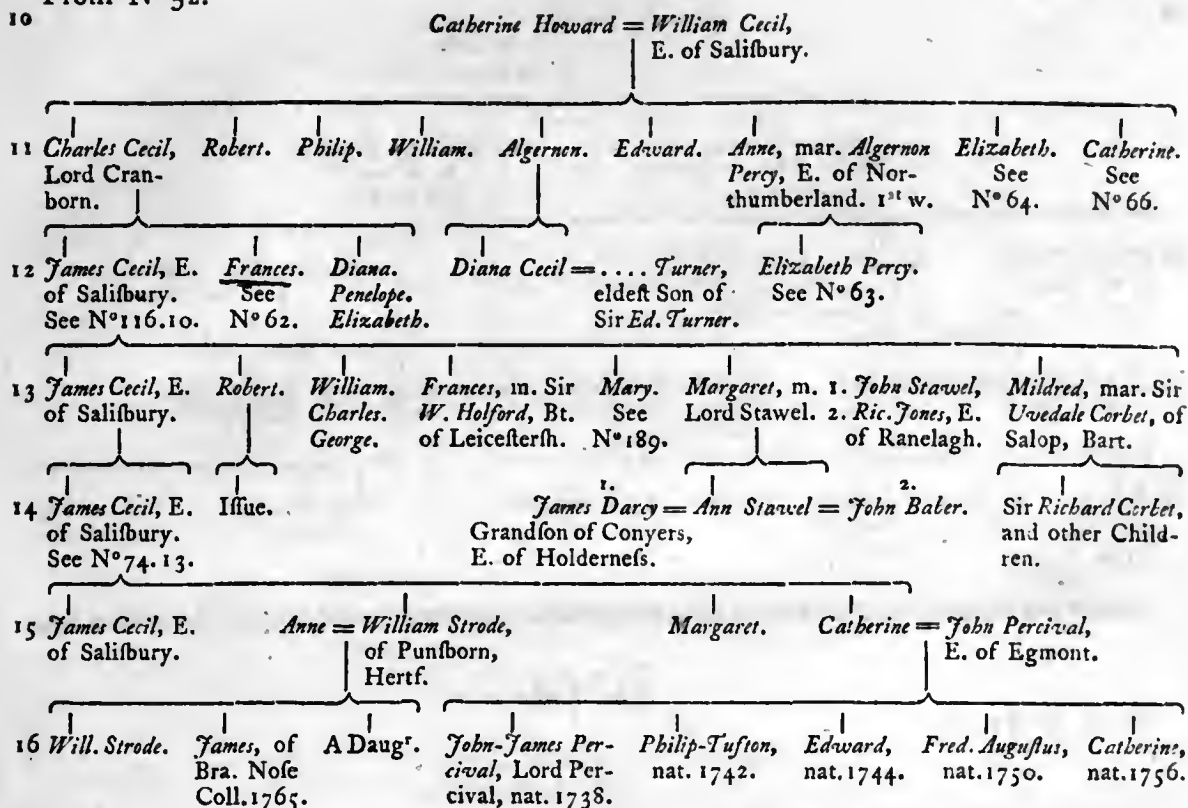 From Nº 52.
10
Catherine Howard = William Cecil,
E. of Saliſbury.
11 Charles Cecil,
Lord Cran-
born.
Robert.
Philip.
William.
Algernon.
Edward.
Anne, mar. Algernon
Percy, E. of Nor-
thumberland. 1st w.
Elizabeth.
See
Nº 64.
Catherine.
See
Nº 66.
12 James Cecil, E.
of Saliſbury.
See Nº 116.10.
Frances.
See
Nº 62.
Diana.
Penelope.
Elizabeth.
Diana Cecil = .... Turner,
eldeſt Son of
Sir Ed. Turner.
Elizabeth Percy.
See Nº 63.
13 James Cecil, E.
of Saliſbury.
Robert.
William.
Charles.
George.
Frances, m. Sir
W. Holford, Bt.
of Leiceſterſh.
Mary.
See
Nº 189.
Margaret, m. 1. John Stawel,
Lord Stawel. 2. Ric. Jones, E.
of Ranelagh.
Mildred, mar. Sir
Uvedale Corbet, of
Salop, Bart.
14 James Cecil, E.
of Saliſbury.
See Nº 74.13.
Iſſue.
1. 2.
James Darcy = Ann Stawel = John Baker.
Grandſon of Conyers,
E. of Holderneſs.
Sir Richard Corbet,
and other Child-
ren.
15 James Cecil, E.
of Saliſbury.
Anne = William Strode,
of Punſborn,
Hertf.
Margaret.
Catherine = John Percival,
E. of Egmont.
16 Will. Strode.
James, of
Bra. Noſe
Coll. 1765.
A Daugr.
John-James Per-
cival, Lord Per-
cival, nat. 1738.
Philip-Tufton,
nat. 1742.
Edward,
nat. 1744.
Fred. Auguſtus,
nat. 1750.
Catherine,
nat. 1756.